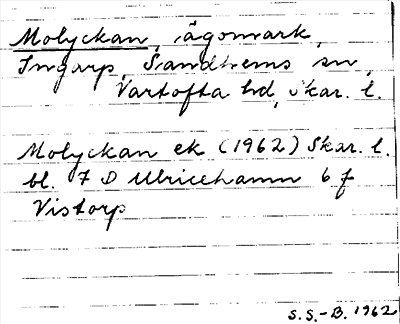 Molyckan, ägomark,
Ingarp, Sandhems sn,
Vartofta hd, Skar. l.
Molyckan ek (1962) Skar. l.
bl. 7 D Ulricehamn 6 f
Vistorp
S.S.-B. 1962